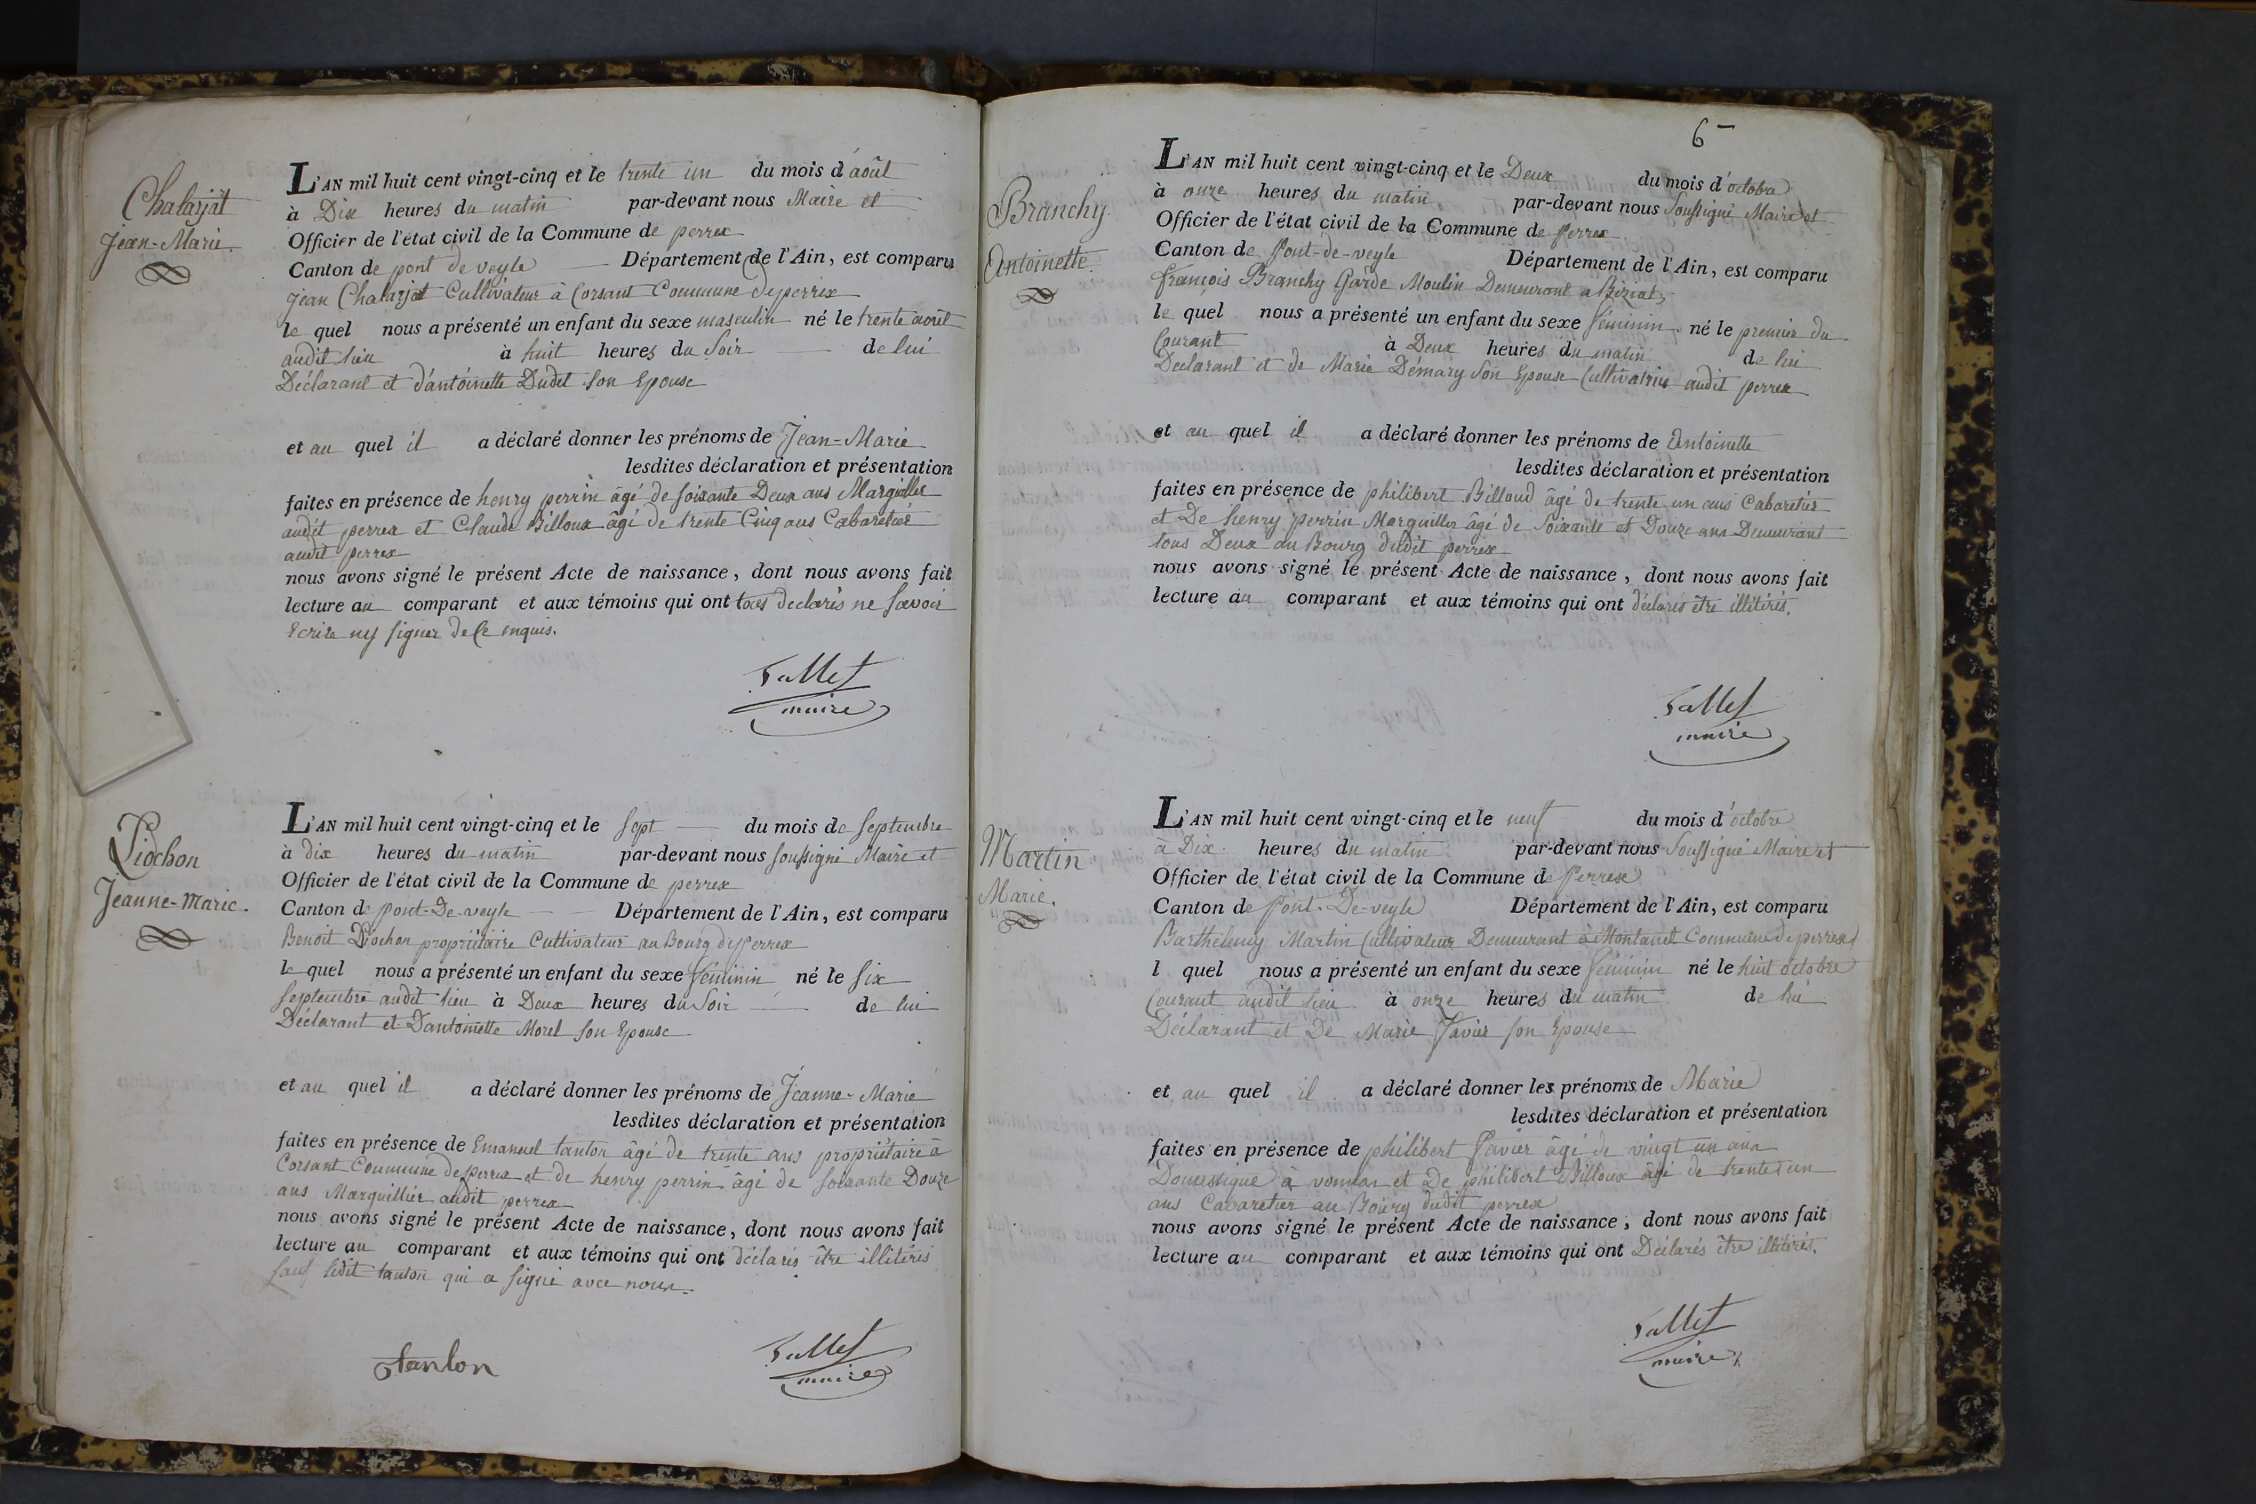 Chalarjat
Jean-Marie.
L'AN mil huit cent vingt-cinq et le trente un du mois d'août
à Dix heures du matin par-devant nous Maire et
Officier de l'état civil de la Commune de perrex
Canton de pont de veyle Département de l'Ain, est comparu
Jean Chalarjat Cultivateur à Corsant Commune de perrex
le quel nous a présenté un enfant du sexe masculin né le trente août
audit lieu à huit heures du Soir de lui
Déclarant et d'antoinette Dudet son Epouse
et au quel il a déclaré donner les prénoms de Jean-Marie
lesdites déclaration et présentation
faites en présence de henry perrin âgé de soixante Deux ans Margiller
audit perrex et Claude Billoux âgé de trente Cinq ans Cabaretier
audit perrex
nous avons signé le présent Acte de naissance, dont nous avons fait
lecture au comparant et aux témoins qui ont tous declarés ne savoir
Ecrire ny signer de Ce enquis.
Tallet
maire
Piochon
Jeanne-Marie.
L'AN mil huit cent vingt-cinq et le sept du mois de septembre
à dix heures du matin par-devant nous soussigné Maire et
Officier de l'état civil de la Commune de perrex
Canton de pont-De-veyle Département de l'Ain, est comparu
Benoit Piochon propriétaire Cultivateur au Bourg de perrex
le quel nous a présenté un enfant du sexe féminin né le six
septembre audit lieu à Deux heures du Soir de lui
Déclarant et D'antoinette Morel son Epouse
et au quel il a déclaré donner les prénoms de Jeanne-Marie
lesdites déclaration et présentation
faites en présence de Emanuel tanton âgé de trente ans propriétaire à
Corsant Commune de perrex et de henry perrin âgé de soixante Douze
ans Marguillier audit perrex
nous avons signé le présent Acte de naissance, dont nous avons fait
lecture au comparant et aux témoins qui ont déclarés être illitérés
sauf ledit tanton qui a signé avec nous.
tanton
Tallet
maire
6
Branchy
Antoinette.
L'AN mil huit cent vingt-cinq et le Deux du mois d'octobre
à onze heures du matin par-devant nous Soussigné Maire et
Officier de l'état civil de la Commune de Perrex
Canton de Pont-de-veyle Département de l'Ain, est comparu
françois Branchy Garde Moulin Demeurant a Biziat,
le quel nous a présenté un enfant du sexe féminin né le premier du
Courant à Deux heures du matin de lui
Declarant et de Marie Démary son Epouse Cultivatrice audit perrex
et au quel il a déclaré donner les prénoms de Antoinette
lesdites déclaration et présentation
faites en présence de philibert Billoud âgé de trente un ans Cabaretier
et De henry perrin Marguiller âgé de Soixante et Douze ans Demeurant
tous Deux au Bourg dudit perrex
nous avons signé le présent Acte de naissance, dont nous avons fait
lecture au comparant et aux témoins qui ont déclarés être illitérés.
Tallet
maire
Martin
Marie.
L'AN mil huit cent vingt-cinq et le neuf du mois d'octobre
à Dix heures du matin par-devant nous Soussigné Maire et
Officier de l'état civil de la Commune de Perrex
Canton de Pont-De-veyle Département de l'Ain, est comparu
Barthelemy Martin Cultivateur Demeurant à Commune de perrex
l quel nous a présenté un enfant du sexe féminin né le huit octobre
Courant audit lieu à onze heures du matin de lui
Déclarant et De Marie Favier son Epouse
et au quel il a déclaré donner les prénoms de Marie
lesdites déclaration et présentation
faites en présence de philibert Favier âgé de vingt un ans
Domestique à vonnas et De philibert Billoux âgé de trente un
ans Cabaretier au Bourg dudit perrex
nous avons signé le présent Acte de naissance, dont nous avons fait
lecture au comparant et aux témoins qui ont Déclarés être illitérés.
Tallet
maire